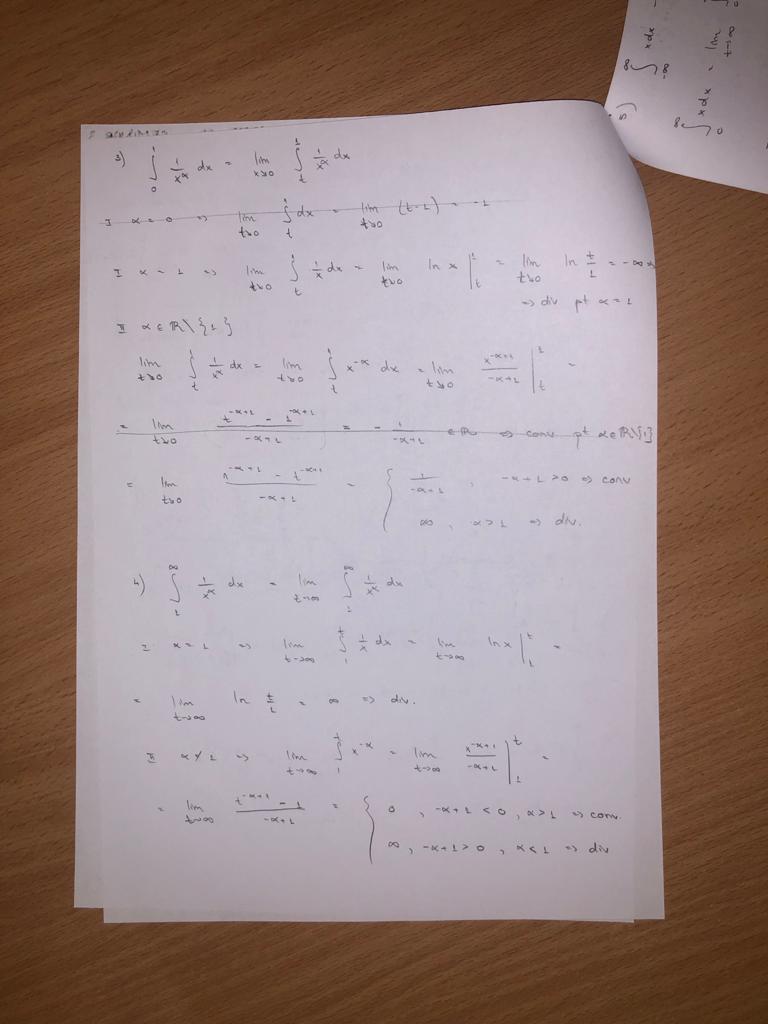 3) ∫₀¹ 1/x^α dx = lim x↘0 ∫ₜ¹ 1/x^α dx
I α = 0 => lim t↘0 ∫ₜ¹ dx = lim t↘0 (t-1) = -1
I α = 1 => lim t↘0 ∫ₜ¹ 1/x dx = lim t↘0 ln x |ₜ¹ = lim t↘0 ln t/1 = -∞
=> div pt α = 1
II α ∈ ℝ\{1}
lim t↘0 ∫ₜ¹ 1/x^α dx = lim t↘0 ∫ₜ¹ x^(-α) dx = lim t↘0 x^(-α+1)/(-α+1) |ₜ¹ =
= lim t↘0 (t^(-α+1) - 1^(-α+1))/(-α+1) = - 1/(-α+1) ∈ ℝ => conv pt α∈ℝ\{1}
= lim t↘0 (1^(-α+1) - t^(-α+1))/(-α+1) = { 1/(-α+1) , -α+1 >0 => conv
∞ , α>1 => div.
4) ∫₁^∞ 1/x^α dx = lim t→∞ ∫₁^∞ 1/x^α dx
I α = 1 => lim t→∞ ∫₁ᵗ 1/x dx = lim t→∞ ln x |₁ᵗ =
= lim t→∞ ln t/1 = ∞ => div.
II α ≠ 1 => lim t→∞ ∫₁ᵗ x^(-α) = lim t→∞ x^(-α+1)/(-α+1) |₁ᵗ =
= lim t→∞ (t^(-α+1) - 1)/(-α+1) = { 0 , -α+1 < 0 , α>1 => conv.
∞ , -α+1 > 0 , α<1 => div
5) ∫₋∞^∞ x dx
∫₀^∞ x dx = lim t→∞